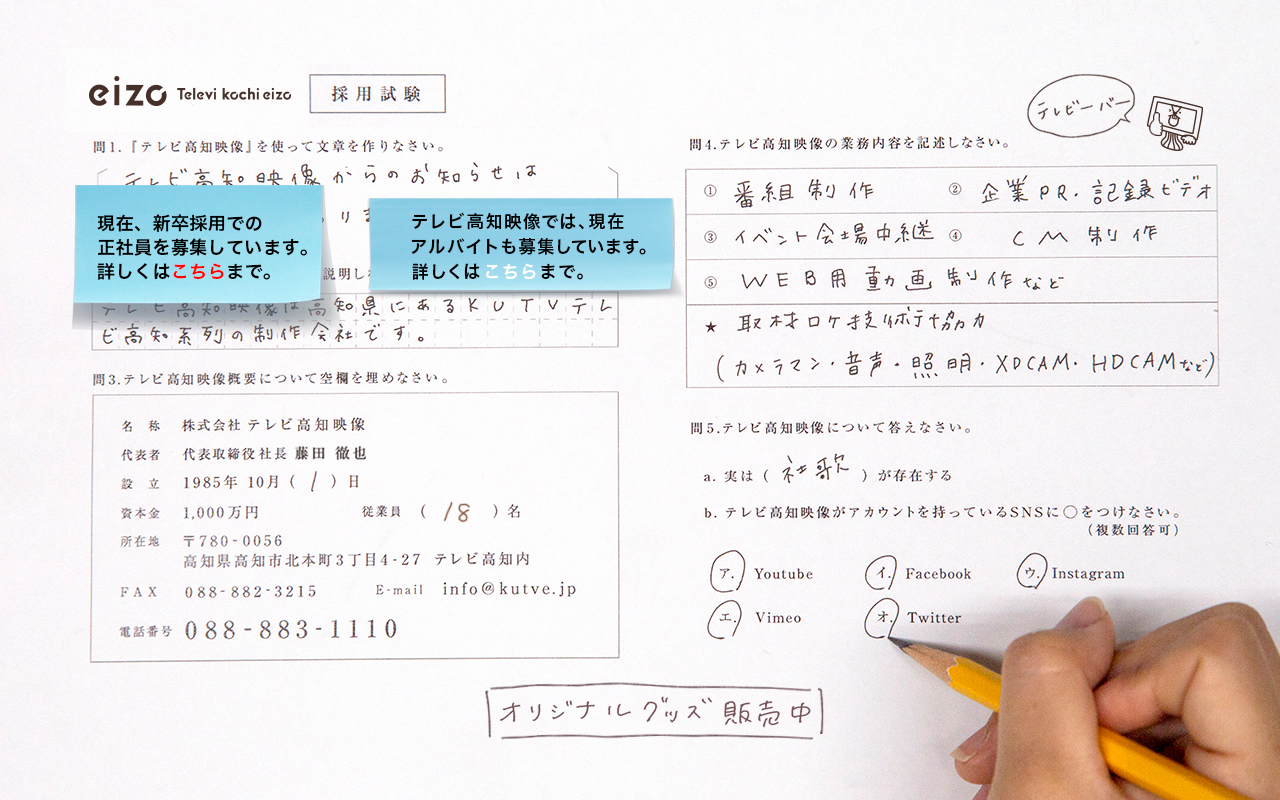 eizo Televi kochi eizo 採用試験
問1.『テレビ高知映像』を使って文章を作りなさい。
テレビ高知映像からのお知らせは
現在、新卒採用での
正社員を募集しています。
詳しくはこちらまで。
テレビ高知映像では、現在
アルバイトも募集しています。
詳しくはこちらまで。
テレビ高知映像は高知県にあるKUTVテレ
ビ高知系列の制作会社です。
問3.テレビ高知映像概要について空欄を埋めなさい。
名 称 株式会社 テレビ高知映像
代表者 代表取締役社長 藤田 徹也
設 立 1985年 10月 ( 1 ) 日
資本金 1,000万円 従業員 ( 18 ) 名
所在地 〒780-0056
高知県高知市北本町3丁目4-27 テレビ高知内
FAX 088-882-3215 E-mail info@kutve.jp
電話番号 088-883-1110
テレビーバー
問4.テレビ高知映像の業務内容を記述しなさい。
① 番組制作 ② 企業PR・記録ビデオ
③ イベント会場中継 ④ CM制作
⑤ WEB用動画制作など
★ 取材ロケ技術協力
(カメラマン・音声・照明・XDCAM・HDCAMなど)
問5.テレビ高知映像について答えなさい。
a. 実は ( 社歌 ) が存在する
b. テレビ高知映像がアカウントを持っているSNSに○をつけなさい。
(複数回答可)
ア. Youtube イ. Facebook ウ. Instagram
エ. Vimeo オ. Twitter
オリジナルグッズ販売中